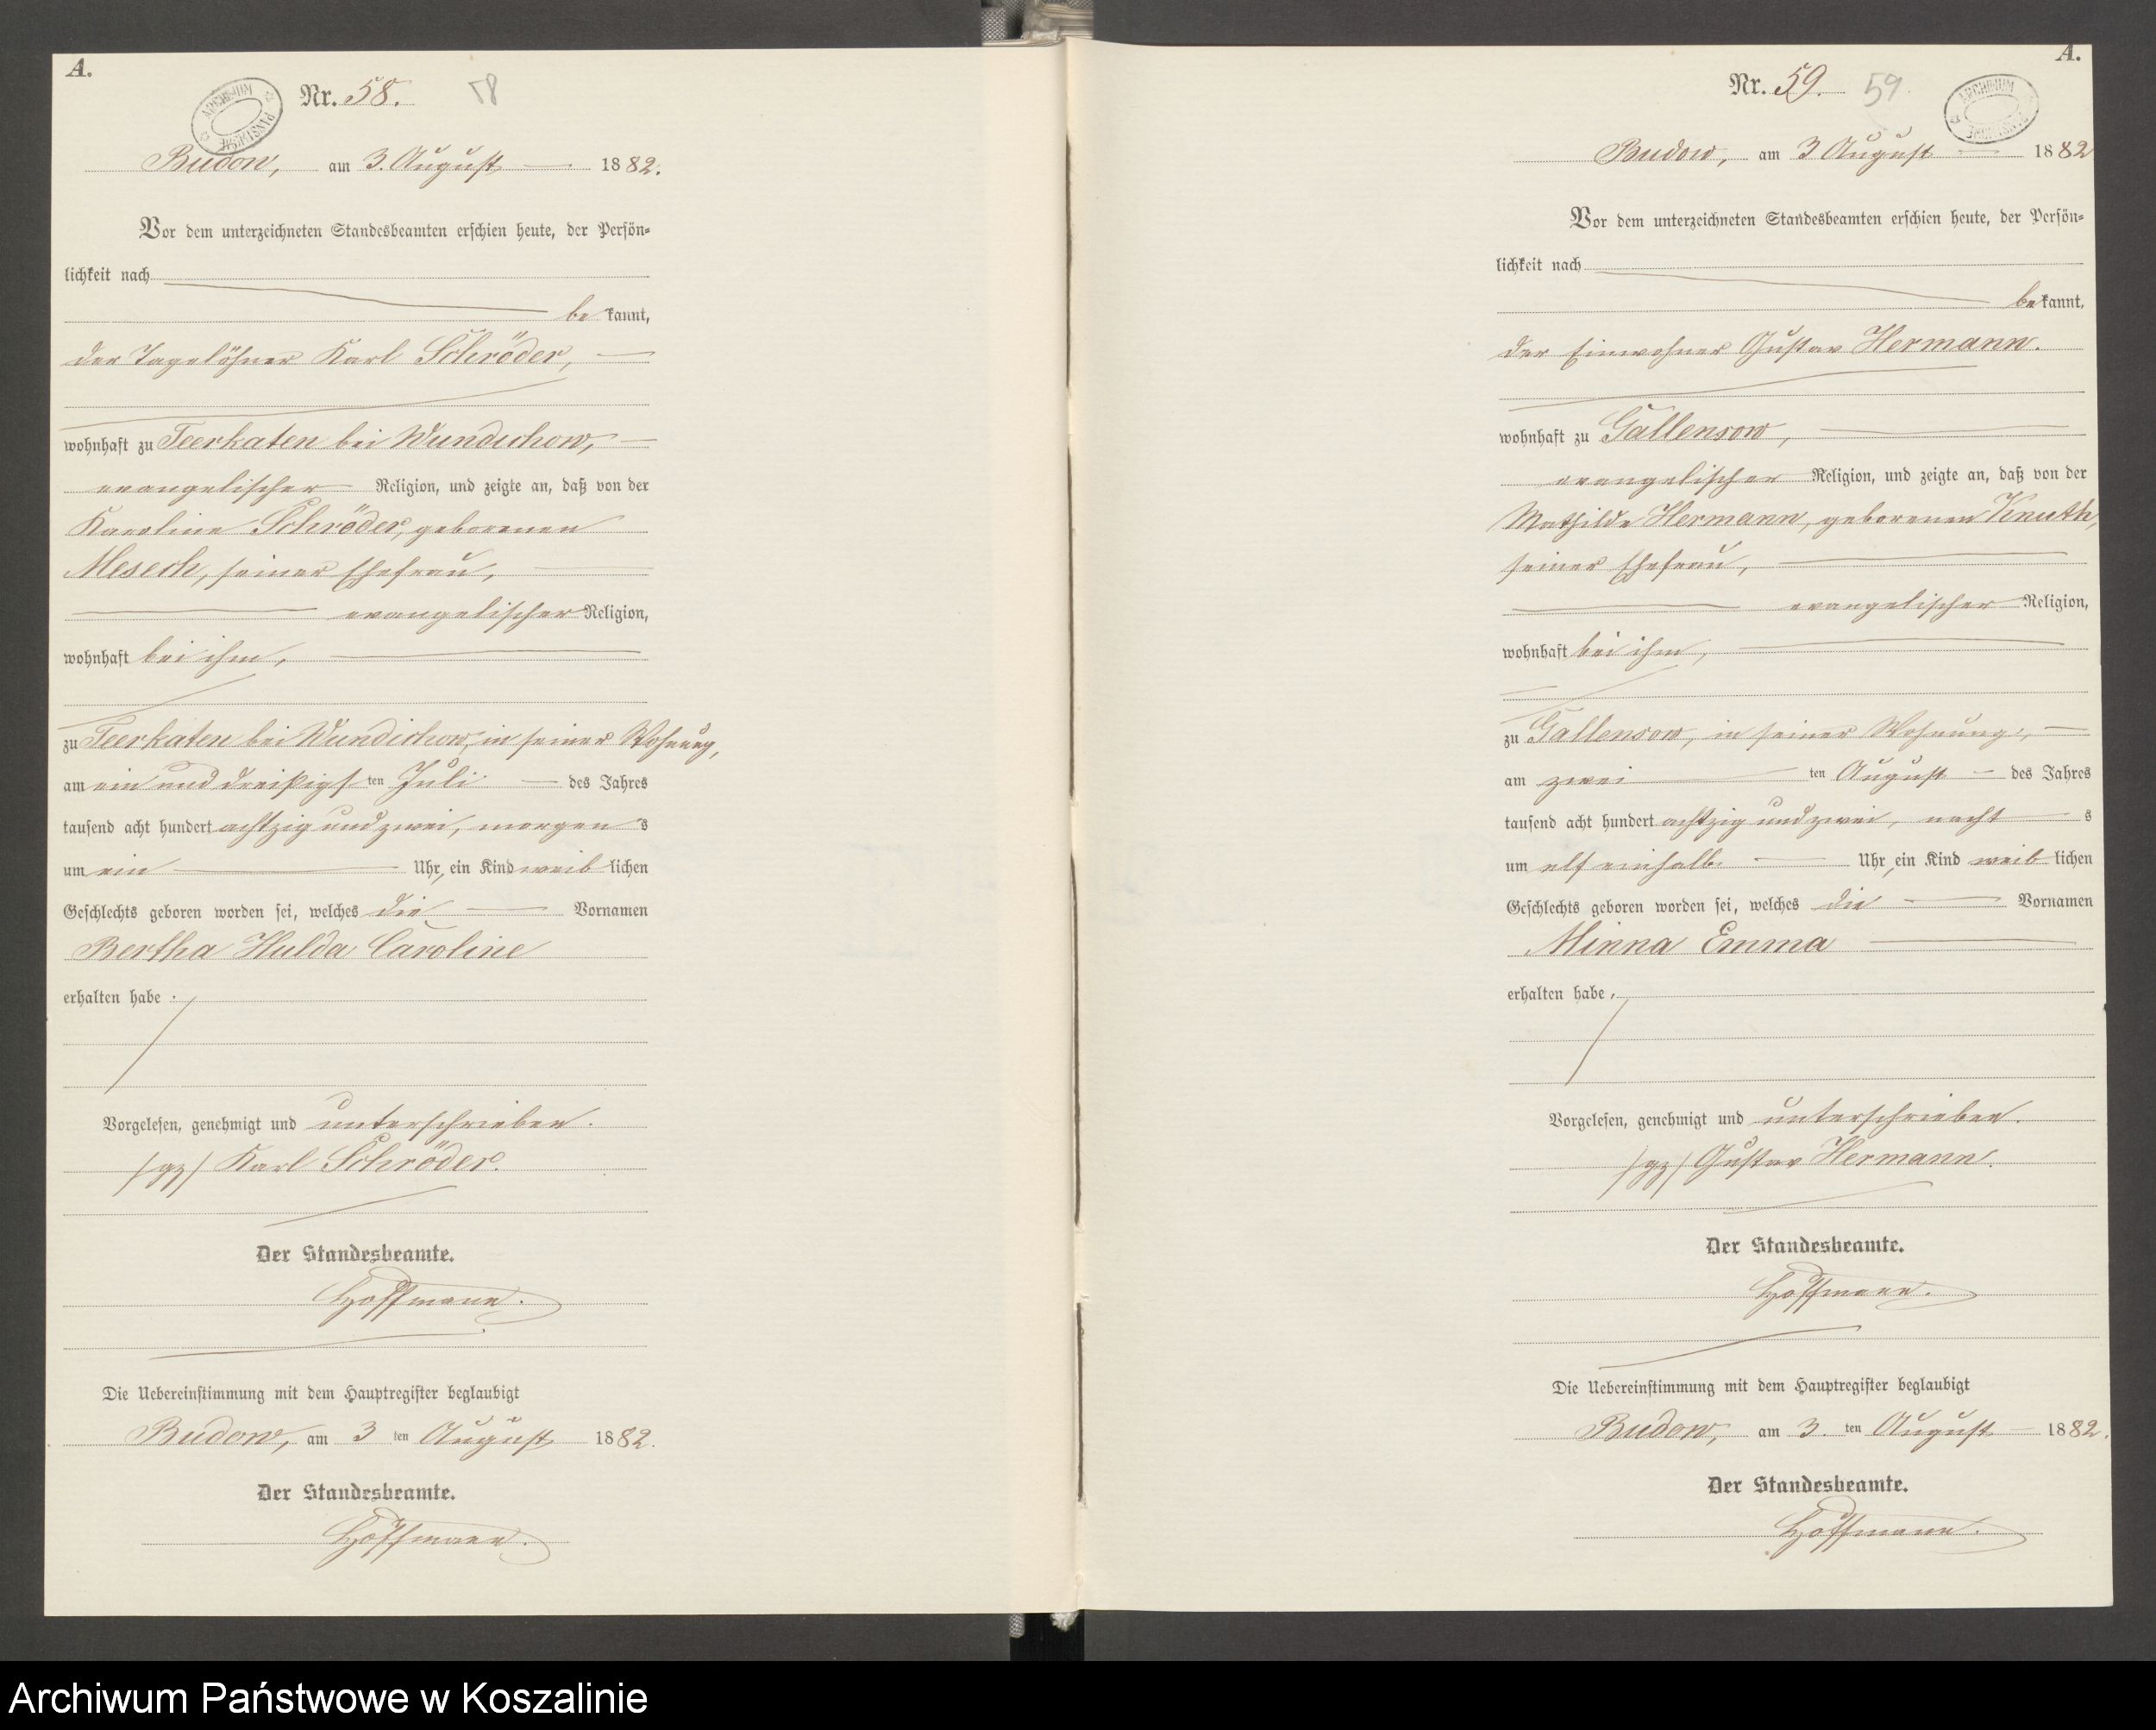 A.
Nr. 58. 58
ARCHIWUM PAŃSTWOWE
Budow, am 3. August 1882.
Vor dem unterzeichneten Standesbeamten erschien heute, der Persön-
lichkeit nach
bekannt,
der Tagelöhner Karl Schröder,
wohnhaft zu Teerkaten bei Wundichow,
evangelischer Religion, und zeigte an, daß von der
Karoline Schröder, geborenen
Mesech, seiner Ehefrau,
evangelischer Religion,
wohnhaft bei ihm,
zu Teerkaten bei Wundichow, in seiner Wohnung,
am ein und dreißigsten Juli des Jahres
tausend acht hundert achtzig und zwei, morgens
um ein Uhr, ein Kind weiblichen
Geschlechts geboren worden sei, welches die Vornamen
Bertha Hulda Caroline
erhalten habe.
Vorgelesen, genehmigt und unterschrieben.
/gz/ Karl Schröder.
Der Standesbeamte.
Hoffmann.
Die Uebereinstimmung mit dem Hauptregister beglaubigt
Budow, am 3ten August 1882.
Der Standesbeamte.
Hoffmann.
A.
Nr. 59. 59
ARCHIWUM PAŃSTWOWE
Budow, am 3 August 1882
Vor dem unterzeichneten Standesbeamten erschien heute, der Persön-
lichkeit nach
bekannt,
der Einwohner Gustav Hermann.
wohnhaft zu Gallensow,
evangelischer Religion, und zeigte an, daß von der
Mathilde Hermann, geborenen Knuth,
seiner Ehefrau,
evangelischer Religion,
wohnhaft bei ihm,
zu Gallensow, in seiner Wohnung,
am zweiten August des Jahres
tausend acht hundert achtzig und zwei, nachts
um elf einhalb Uhr, ein Kind weiblichen
Geschlechts geboren worden sei, welches die Vornamen
Minna Emma
erhalten habe,
Vorgelesen, genehmigt und unterschrieben.
/gz/ Gustav Hermann.
Der Standesbeamte.
Hoffmann.
Die Uebereinstimmung mit dem Hauptregister beglaubigt
Budow, am 3. ten August 1882.
Der Standesbeamte.
Hoffmann.
Archiwum Państwowe w Koszalinie